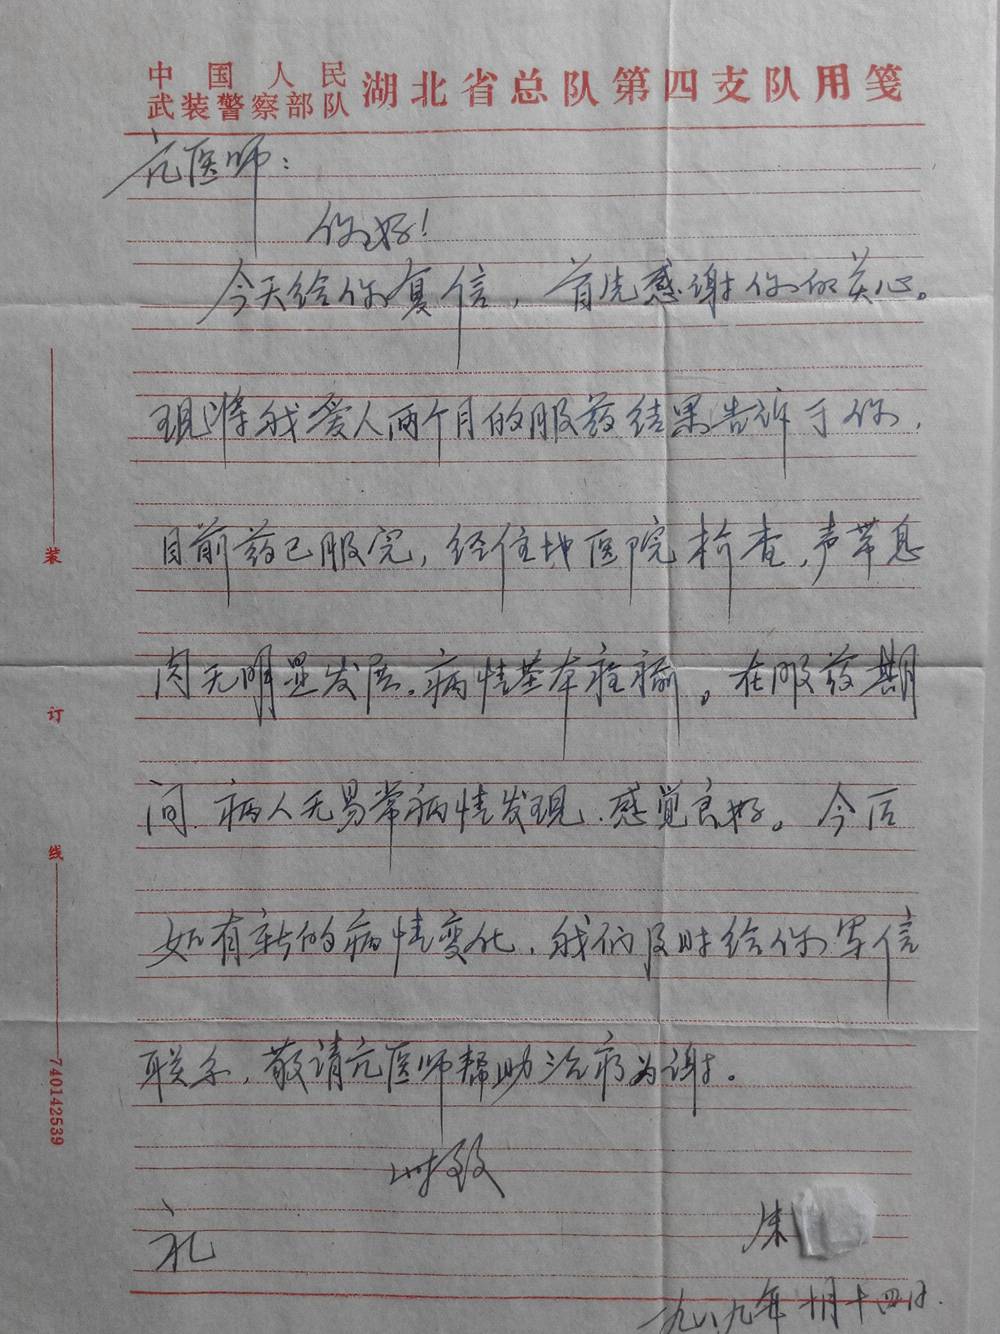 中国人民
武装警察部队 湖北省总队第四支队用笺
亢医师：
你好！
今天给你复信，首先感谢你的关心。
现将我爱人两个月的服药结果告诉于你，
目前药已服完，经住地医院检查，声带息
肉无明显发展。病情基本稳定。在服药期
间.病人无易常病情发现.感觉良好。今后
如有新的病情变化，我们及时给你写信
联系，敬请亢医师帮助治疗为谢。
此致
礼
朱
一九八九年十月十四日.
装
订
线
740142539